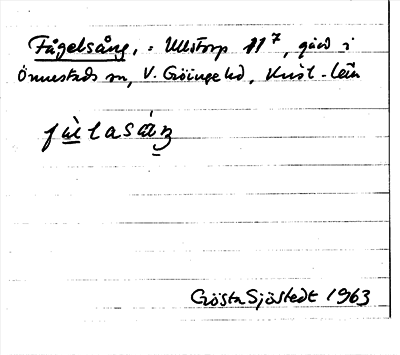 Fågelsång, : Ullstorp 11⁷, gård i
Önnestads sn, V. Göinge hd, Krist-län
fùlasáŋ
Gösta Sjöstedt 1963